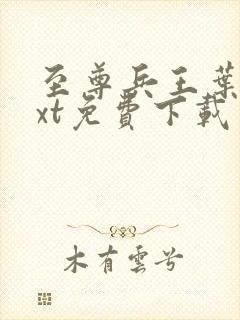 至尊兵王葉
xt免費下載
木有雲兮